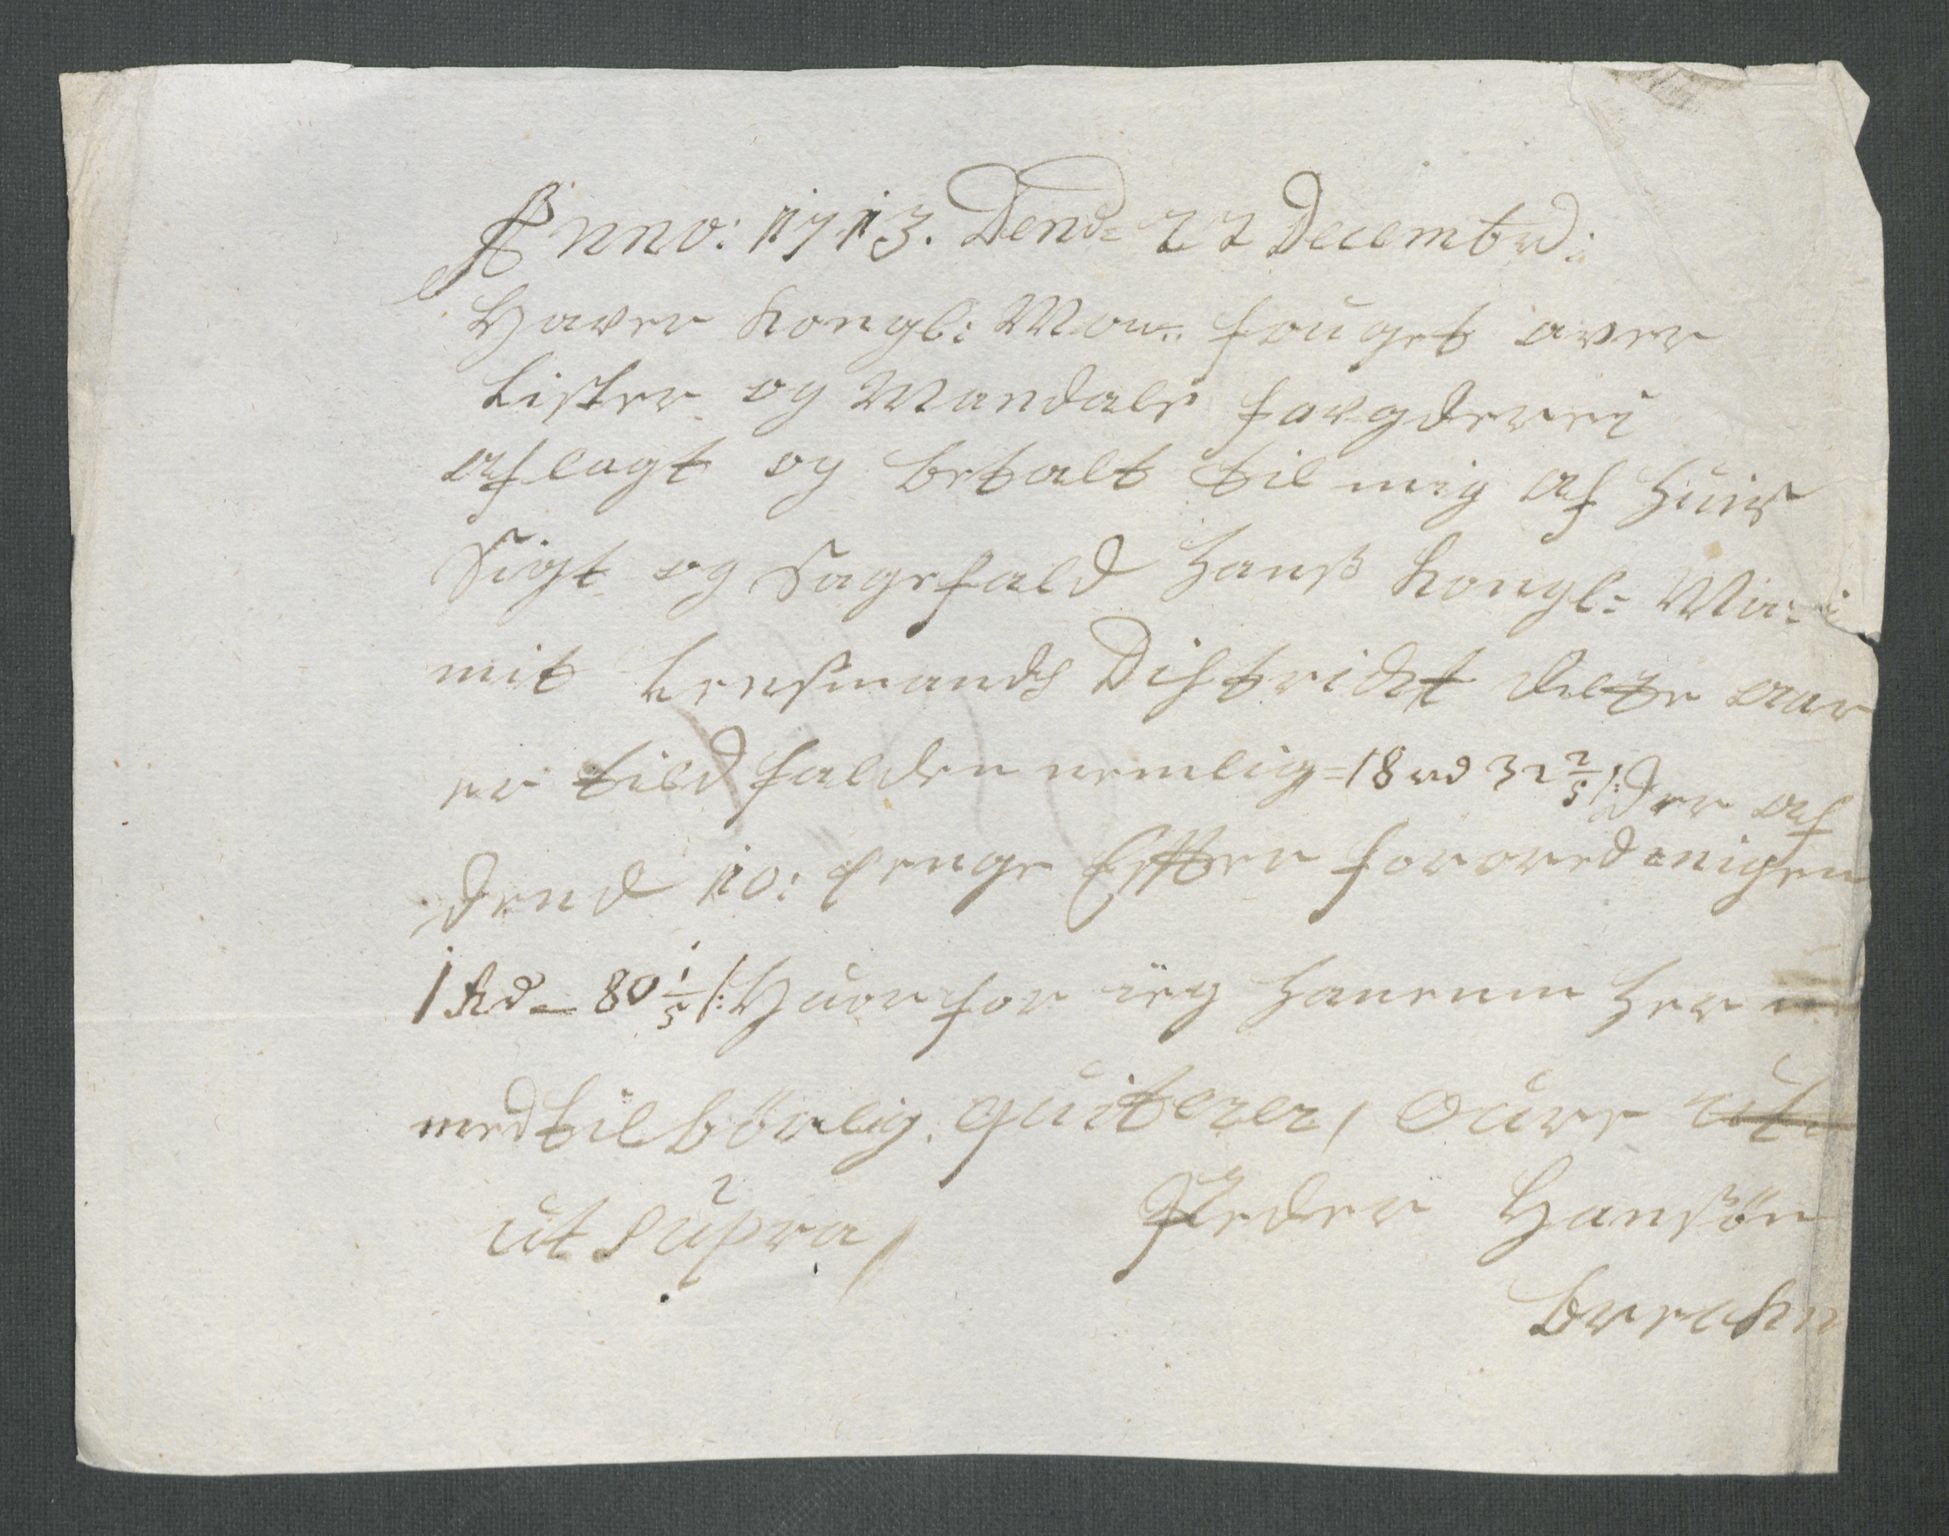 Anno: 1713. Dend= 22 Decembrd:
Haver Kongl: May: fouget over
Lister og Mandals fougderei
aflagt og betalt til mig af huis
Sigt og Sagefald hans Kongl= Ma: i
mit Lensmands District dette aar
er tildfalden nemlig = 18 rd 32 2/5 /: der af
dend 10: penge Effter forordningen
1 Rd - 80 1/5 /: Huor for ieg hanenm her
med tilbørlig quiterer / Oure
ut Supra / Peder Hanßøn